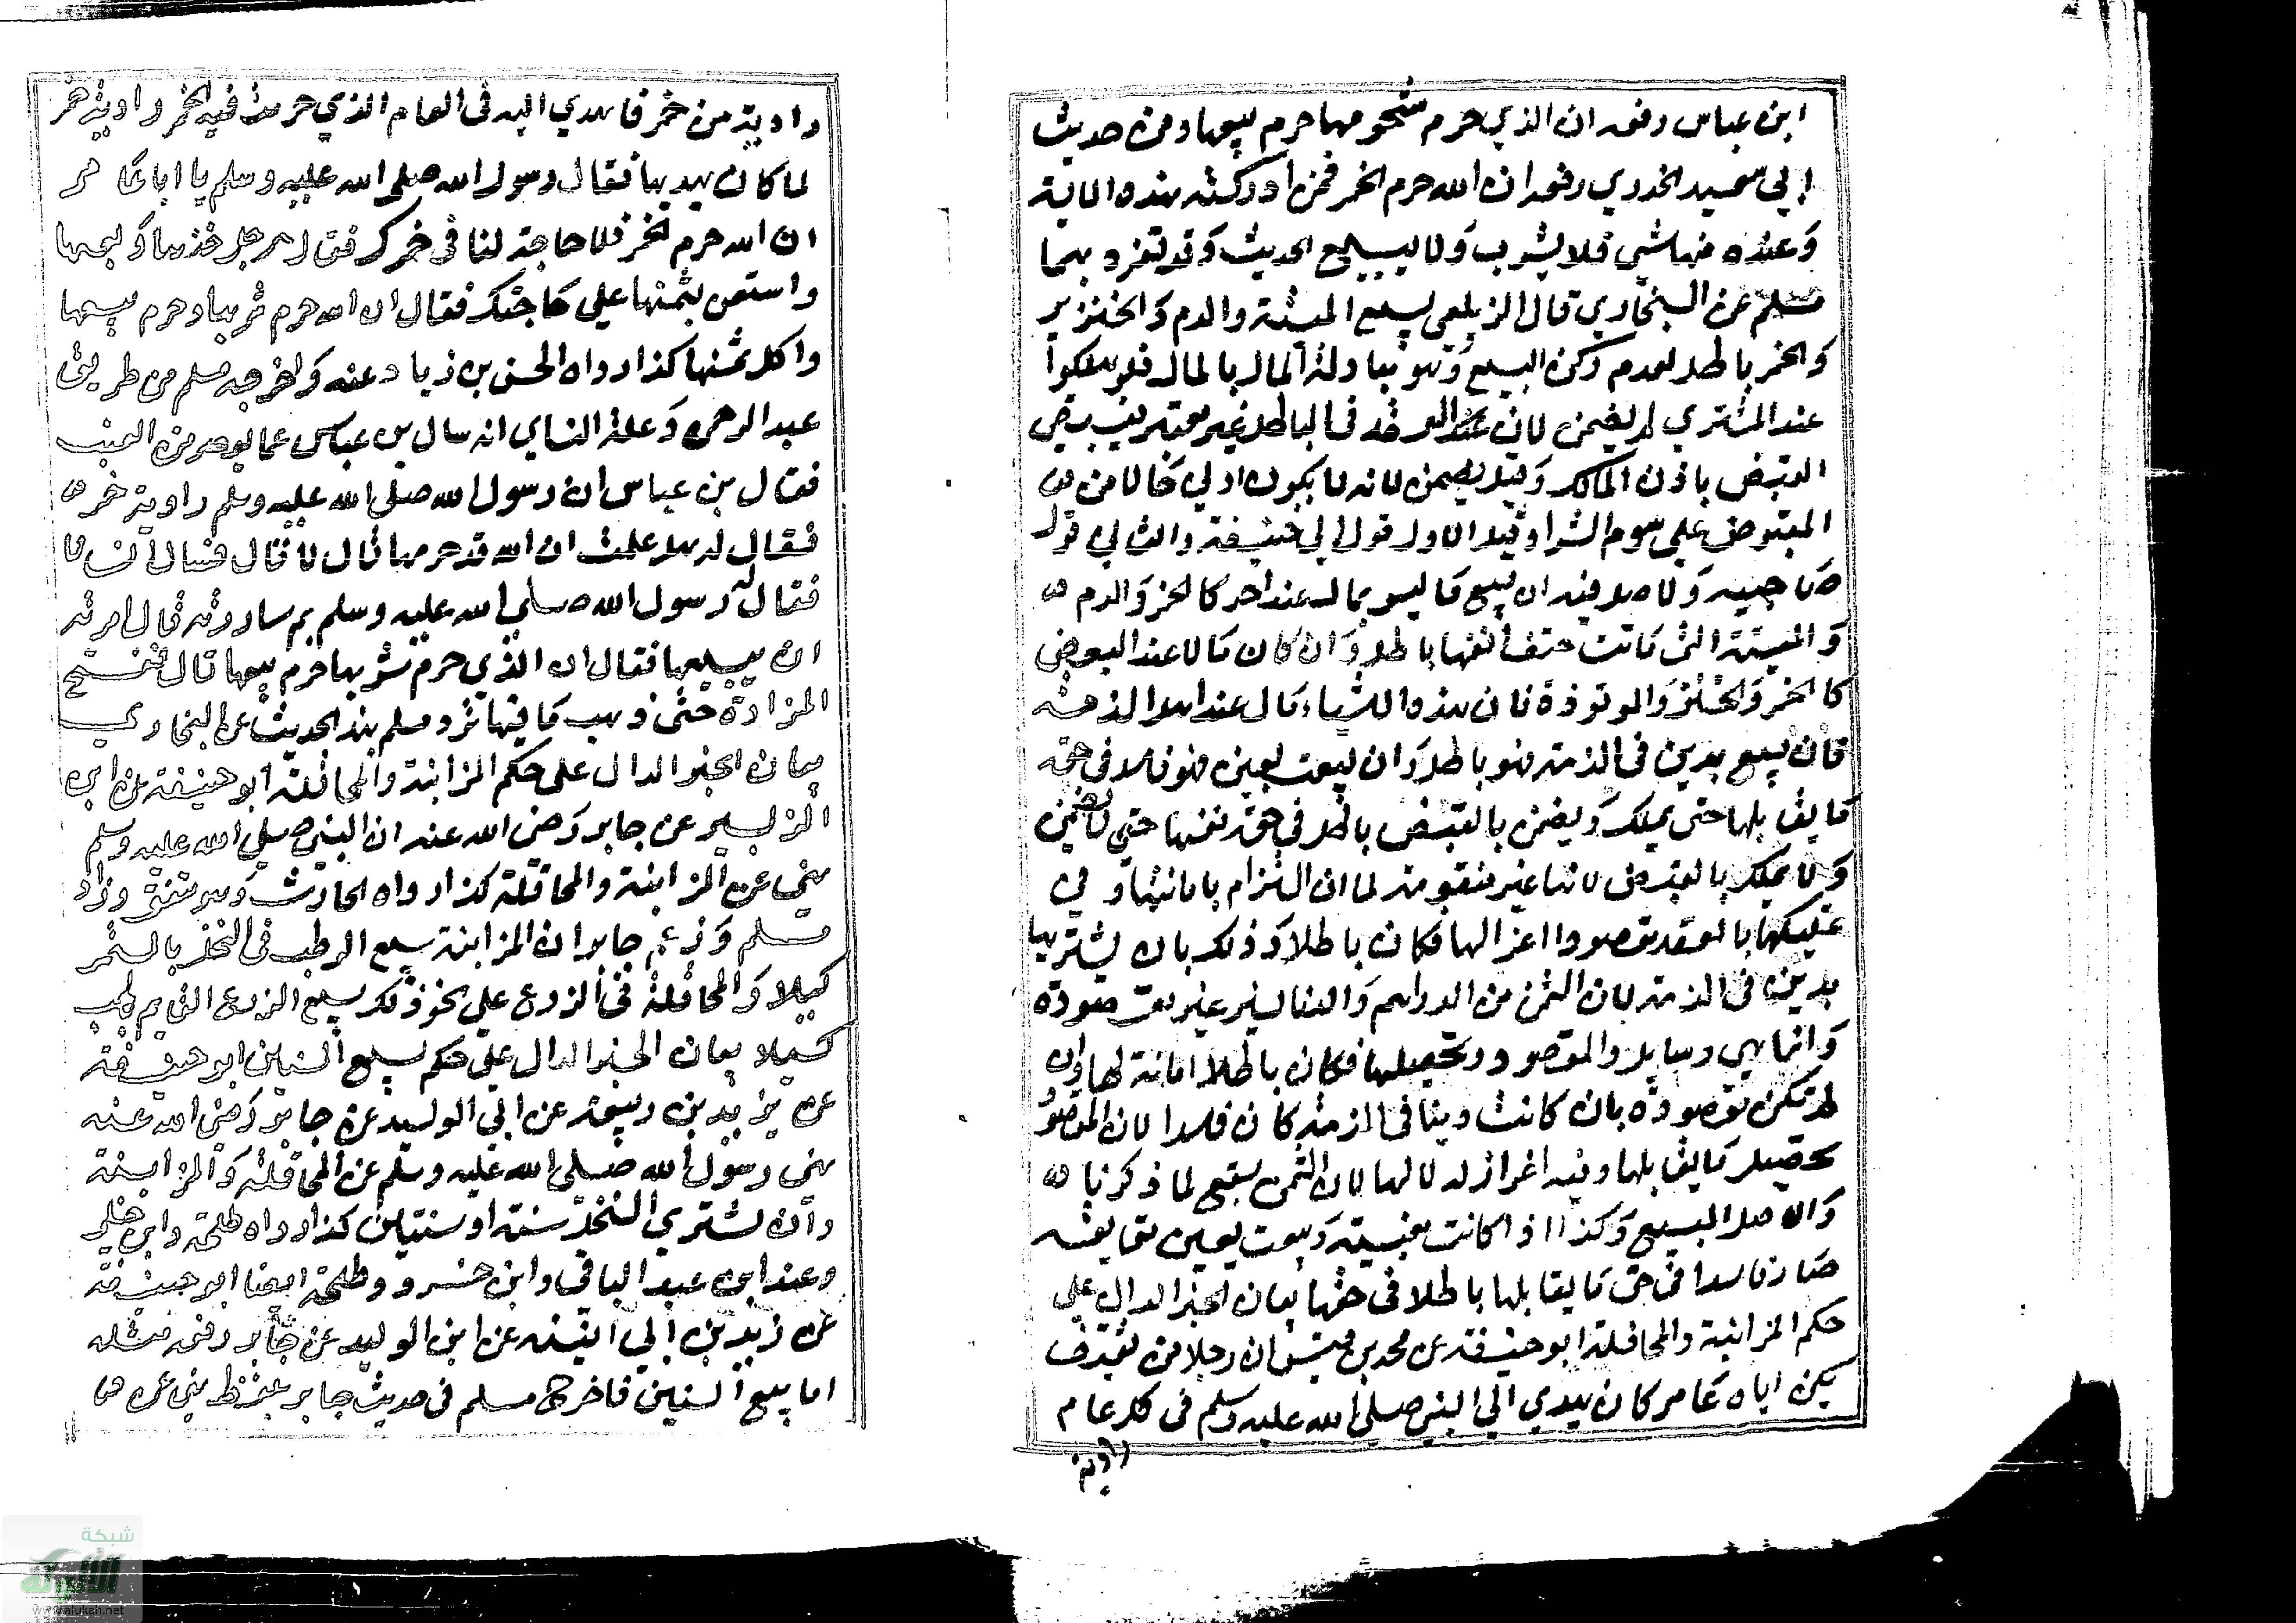 ابن عباس رفعه ان الذي حرم شحومها حرم بيعها ومن حديث
ابي سعيد الخدري رفعه ان الله حرم الخمر فمن ادركته هذه الاية
وعنده منها شي فلا يشرب ولا يبيع الحديث وقد تفرد بهما
مسلم عن البخاري قال الزيلعي بيع الميتة والدم والخنزير
والخمر باطل لعدم ركن البيع وهو مبادلة المال بالمال فلو هلكوا
عند المشتري لم يضمن لان العقد في الباطل غير معتبر فبقي
القبض باذن المالك وقيل يضمن لانه لا يكون ادني حالا من
المقبوض علي سوم الشرا وقيل الاول قول ابي حنيفة والثاني قول
صاحبيه والاصل فيه ان بيع ما ليس بمال عند احد كالخمر والدم
والميتة التي ماتت حتف انفها باطل وان كان مالا عند البعض
كالخمر والخنزير والموقوذة فان هذه الاشياء مال عند اهل الذمة
فان بيع بدين في الذمة فهو باطل وان بيعت بعين فهو فاسد في حق
ما يقابلها حتي يملك ويضمن بالقبض باطل في حق نفسها حتي لا تضمن
ولا يملك بالقبض لانها غير متقومة لما ان الشرع امر باهانتها وفي
تمليكها بالعقد مقصودا اعزاز لها فكان باطلا وذلك بان يشتريها
بدين في الذمة لان الثمن من الدراهم والدنانير غير مقصودة
وانما هي وسايل والمقصود تحصيلها فكان باطلا اهانة لها وان
لم تكن مقصودة بان كانت دينا في الذمة كان فاسدا لان المقصود
تحصيل ما يقابلها وفيه اعزاز له لا لها لان الثمن تبع لما ذكرنا
والاصل المبيع وكذا اذا كانت معينة وبيعت بعين مقايضة
صار فاسدا في حق ما يقابلها باطلا في حقها بيان الخبر الدال علي
حكم المزابنة والمحاقلة ابو حنيفة عن محمد بن قيس ان رجلا من ثقيف
يكنى اباه عامر كان يهدي الي النبي صلي الله عليه وسلم في كل عام
راوية
راوية من خمر فاهدي اليه في العام الذي حرمت فيه الخمر راوية خمر
لما كان يهديها فقال رسول الله صلى الله عليه وسلم يا ابا عامر
ان الله حرم الخمر فلا حاجة لنا في خمرك فقال رجل خذها وبعها
واستعن بثمنها علي حاجتك فقال ان الله حرم شربها وحرم بيعها
واكل ثمنها كذا رواه الحسن بن زياد عنه واخرجه مسلم من طريق
عبد الرحمن وعلة النساي انه سال بن عباس عما يعصر من العنب
فقال بن عباس ان رسول الله صلي الله عليه وسلم راوية خمر
فقال له هل علمت ان الله قد حرمها قال لا قال فسار انسانا
فقال له رسول الله صلي الله عليه وسلم بم ساررته قال امرته
ان يبيعها فقال ان الذي حرم شربها حرم بيعها قال ففتح
المزادة حتى ذهب ما فيها تفرد مسلم بهذا الحديث عن البخاري
بيان الخبر الدال على حكم المزابنة والمحاقلة ابو حنيفة عن ابي
الزبير عن جابر رضي الله عنه ان النبي صلي الله عليه وسلم
نهي عن المزابنة والمحاقلة كذا رواه الحارث وهو متفق وزاد
مسلم وزعم جابر ان المزابنة بيع الرطب في النخل بالتمر
كيلا والمحاقلة في الزرع علي نحو ذلك بيع الزرع القايم بالحب
كيلا بيان الخبر الدال علي حكم بيع السنين ابو حنيفة
عن يزيد بن ربيعة عن ابي الوليد عن جابر رضي الله عنه
نهي رسول الله صلى الله عليه وسلم عن المحاقلة والمزابنة
وان تشتري النخل سنة او سنتين كذا رواه طلحة وابن خلي
وعند ابن عبد الباقي وابن خسرو وطلحة ايضا ابو حنيفة
عن زيد بن ابي انيسة عن ابن الوليد عن جابر رفعه مثله
اما بيع السنين فاخرجه مسلم في حديث جابر بلفظ نهي عن
شبكة
الألوكة
www.alukah.net